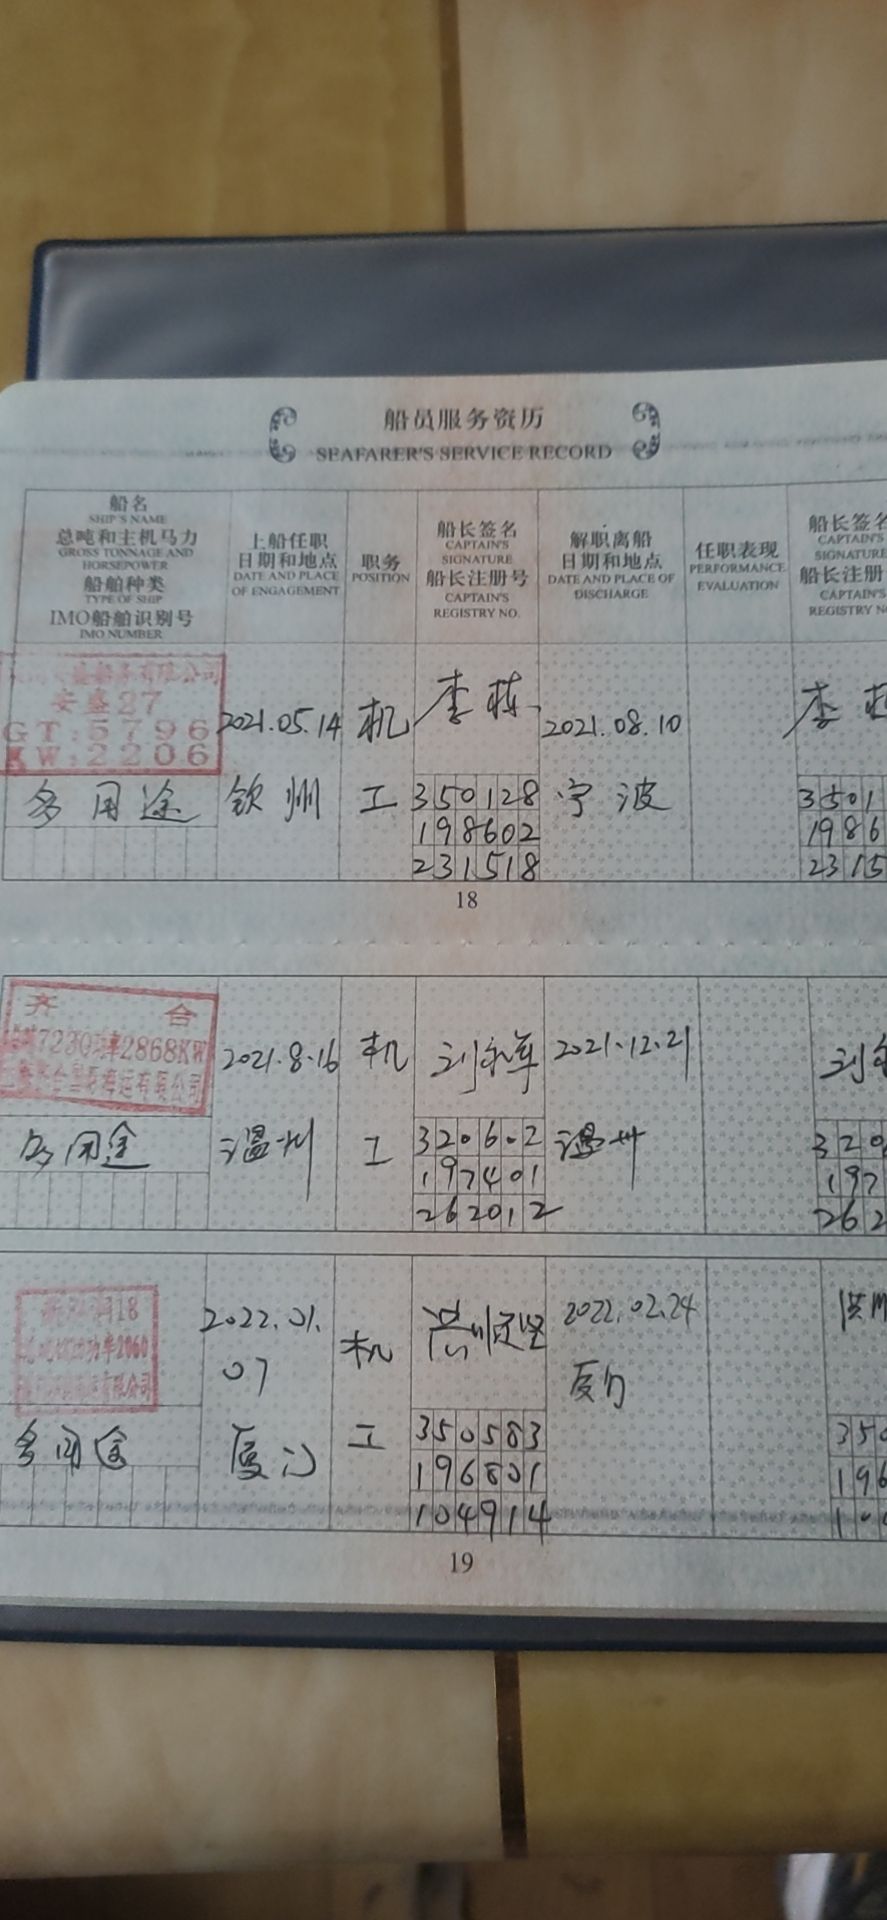 船员服务资历
SEAFARER'S SERVICE RECORD
船名
SHIP'S NAME
总吨和主机马力
GROSS TONNAGE AND
HORSEPOWER
船舶种类
TYPE OF SHIP
IMO船舶识别号
IMO NUMBER
上船任职
日期和地点
DATE AND PLACE
OF ENGAGEMENT
职务
POSITION
船长签名
CAPTAIN'S
SIGNATURE
船长注册号
CAPTAIN'S
REGISTRY NO.
解职离船
日期和地点
DATE AND PLACE OF
DISCHARGE
任职表现
PERFORMANCE
EVALUATION
船长签名
CAPTAIN'S
SIGNATURE
船长注册
CAPTAIN'S
REGISTRY
船务有限公司
安盛27
GT:5796
KW:2206
多用途
2021.05.14
钦州
机
工
李栋
350128
198602
231518
2021.08.10
宁波
李
3501
1986
2315
18
齐合
7230功率2868KW
海运有限公司
多用途
2021.8.16
温州
机
工
320602
197401
262012
2021.12.21
温州
320
197
262
18
功率2060
有限公司
多用途
2022.01.
07
厦门
机
工
350583
196801
104914
2022.02.24
厦门
350
196
19